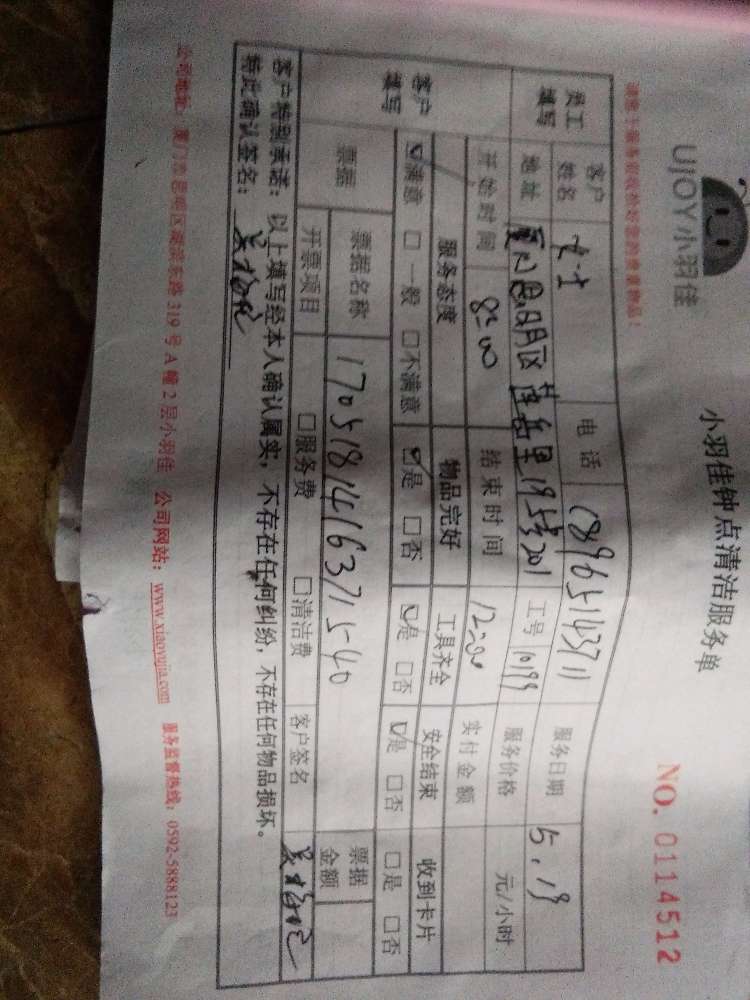 UJOY小羽佳
小羽佳钟点清洁服务单
NO. 0114512
员工填写 客户姓名 女士 电话 18965143711 服务日期 5.19
地址 厦门思明区莲岳里195号201 工号 10199 服务价格 元/小时
客户填写 开始时间 8:00 结束时间 12:00 实付金额
服务态度 物品完好 工具齐全 安全结束 收到卡片
☑满意 □一般 □不满意 ☑是 □否 ☑是 □否 ☑是 □否 □是 □否
票据 票据名称 1705181416371540 票据金额
开票项目 □服务费 □清洁费 客户签名
客户特别承诺：以上填写经本人确认属实，不存在任何纠纷，不存在任何物品损坏。
特此确认签名：
公司地址：厦门市思明区湖滨东路 319 号 A 幢 2 层小羽佳 公司网站：www.xiaoyujia.com 服务监督热线：0592-5888123